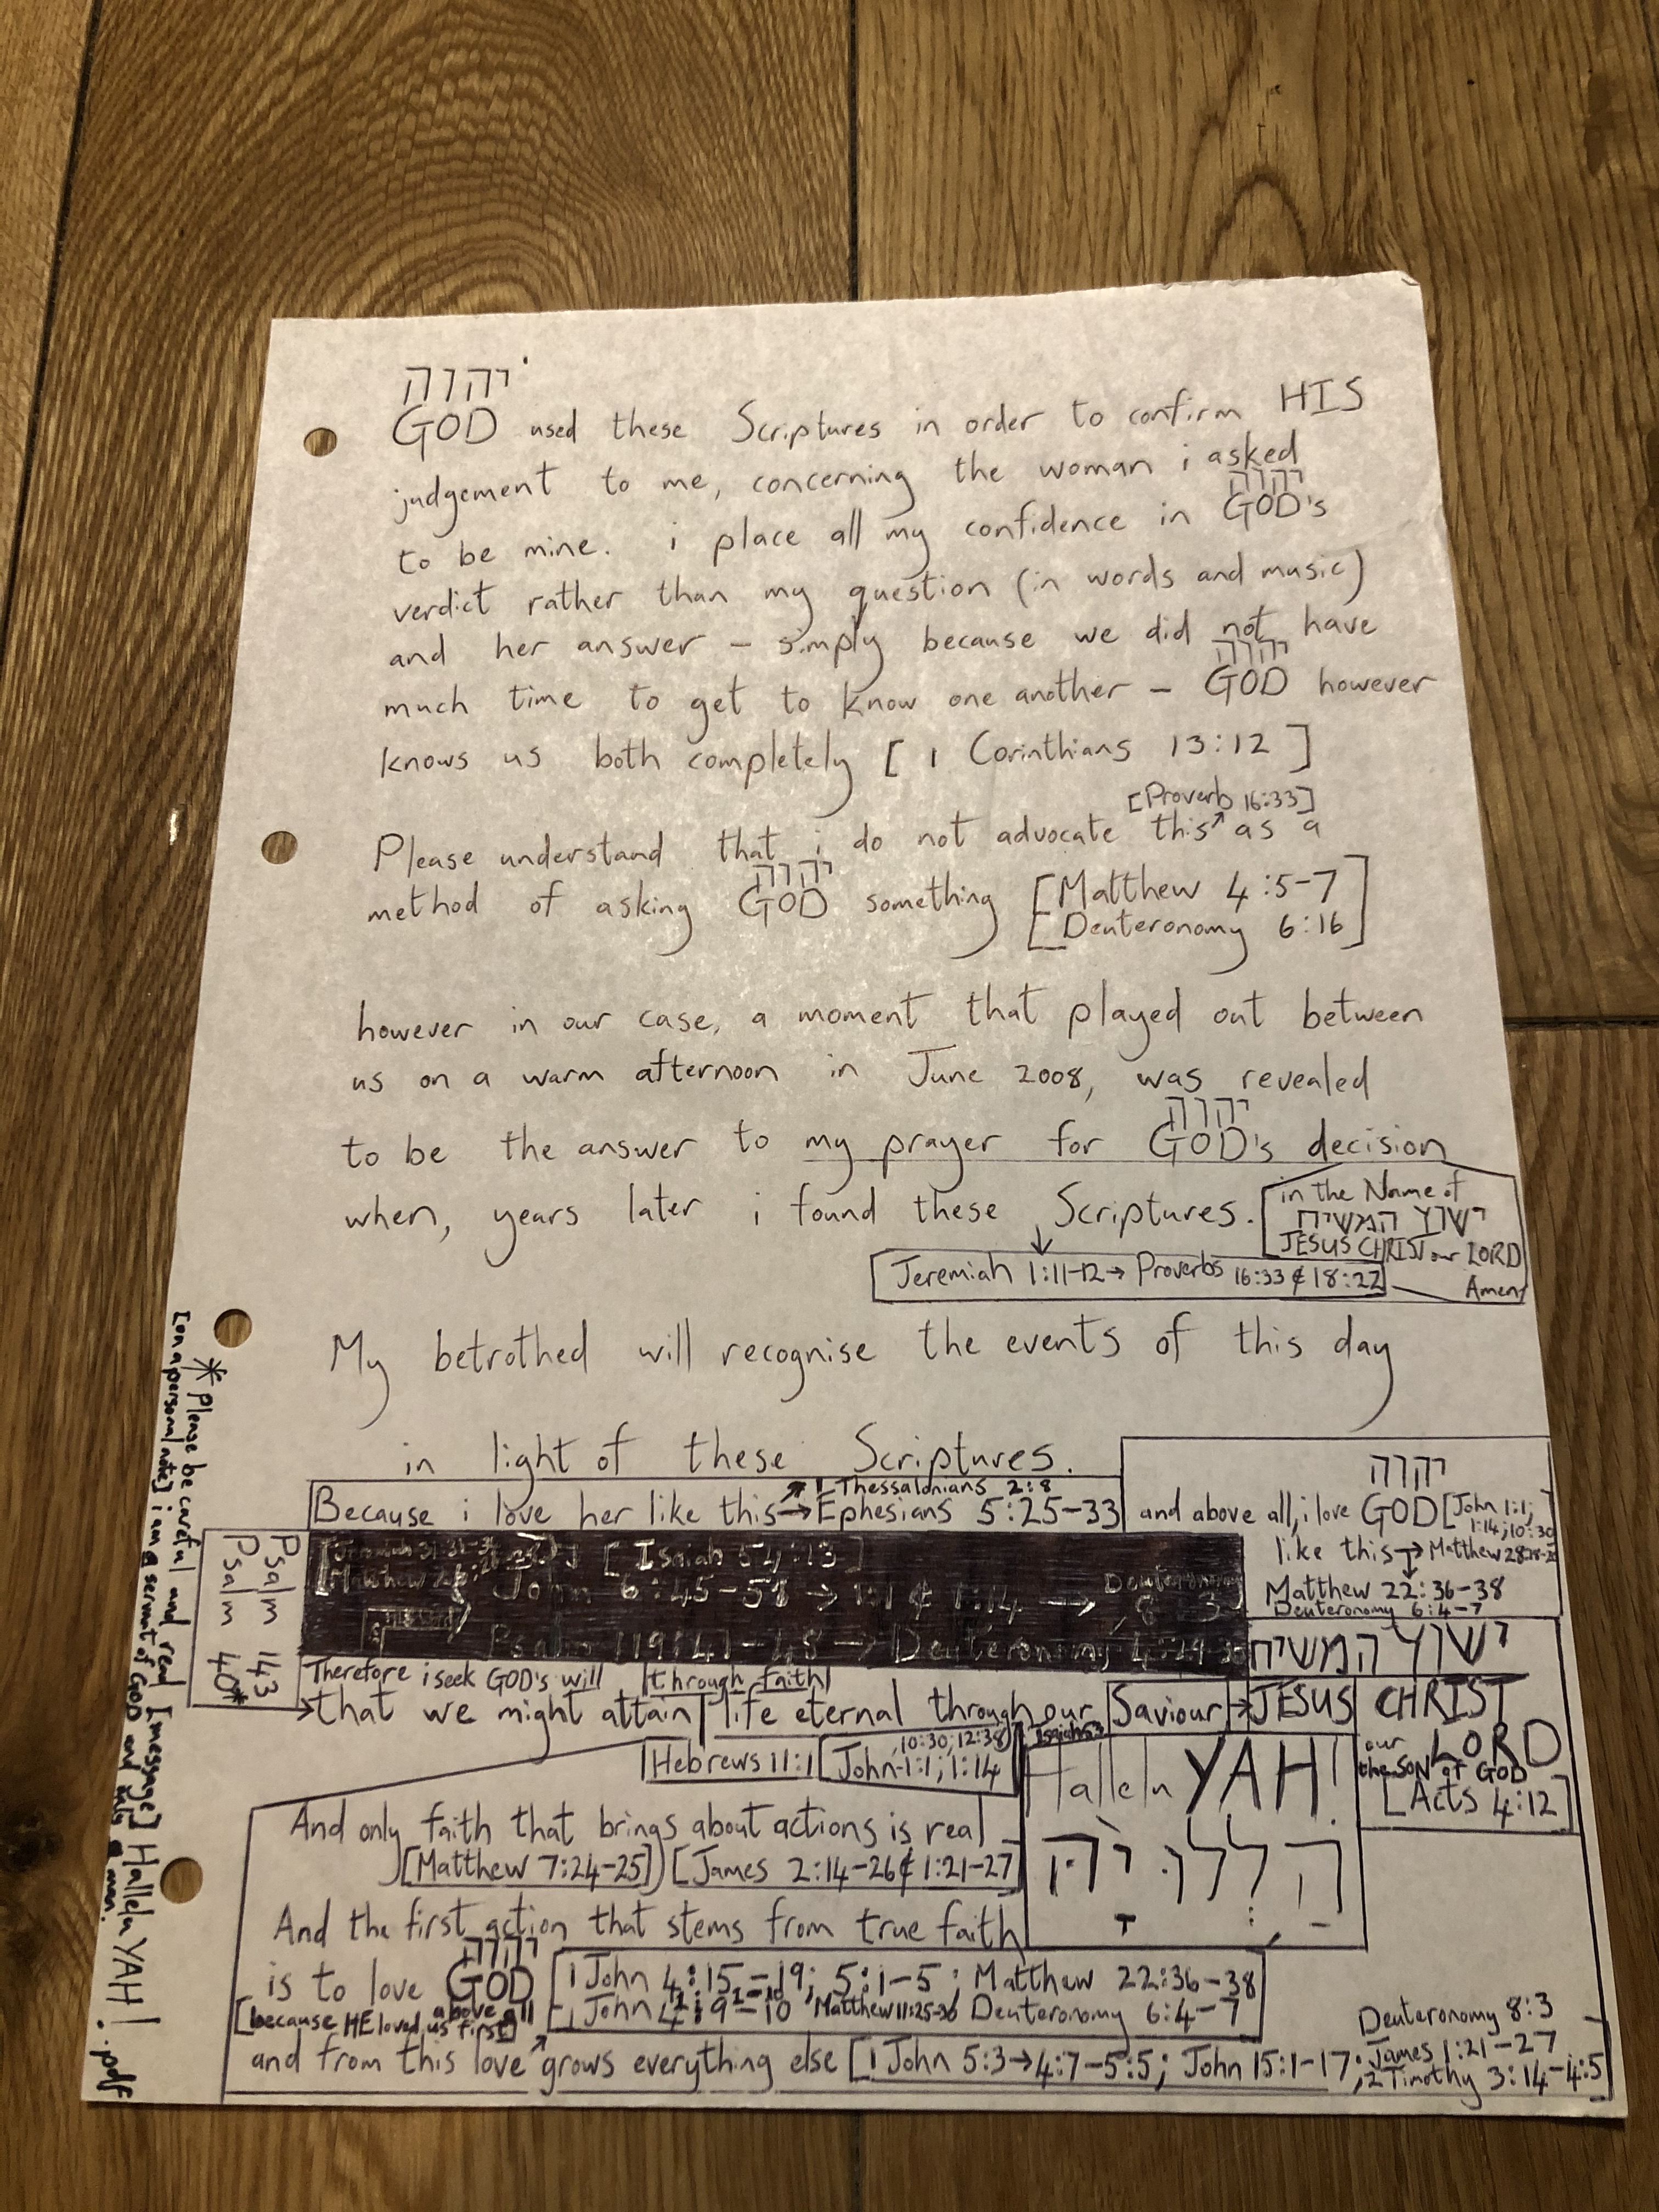 יהוה
GOD used these Scriptures in order to confirm HIS
judgement to me, concerning the woman i asked
יהוה
to be mine. i place all my confidence in GOD's
verdict rather than my question (in words and music)
and her answer – simply because we did not have
יהוה
much time to get to know one another – GOD however
knows us both completely [ 1 Corinthians 13:12 ]
[Proverb 16:33]
Please understand that i do not advocate this↗ as a
יהוה
method of asking GOD something [Matthew 4:5-7
Deuteronomy 6:16]
however in our case, a moment that played out between
us on a warm afternoon in June 2008, was revealed
יהוה
to be the answer to my prayer for GOD's decision
when, years later i found these Scriptures.
in the Name of
ישוע המשיח
JESUS CHRIST our LORD
Amen
Jeremiah 1:11-12→ Proverbs 16:33 & 18:22
My betrothed will recognise the events of this day
in light of these Scriptures.
1 Thessalonians 2:8
Because i love her like this→Ephesians 5:25-33
יהוה
and above all, i love GOD [John 1:1;
1:14; 10:30
like this→ Matthew
Matthew 22:36-38
Deuteronomy 6:4-7
[Isaiah 54:13]
John 6:45-58 → 1:1 & 1:14 → Deuteronomy
8:3
Psalm 119:47-48 → Deuteronomy 4:29
ישוע המשיח
Psalm 143
Psalm 40*
Therefore i seek GOD's will through faith
→that we might attain life eternal through our Saviour→JESUS CHRIST
our LORD
the SON of GOD
[Acts 4:12]
Isaiah 53
Hebrews 11:1
10:30; 12:38)
John 1:1; 1:14
HalleluYAH!
הַלְלוּ יָהּ
And only faith that brings about actions is real
[Matthew 7:24-25] [James 2:14-26 & 1:21-27
And the first action that stems from true faith
יהוה
is to love GOD
above all
[because HE loved us first]
1 John 4:15-19; 5:1-5; Matthew 22:36-38
Matthew 11:25-30 Deuteronomy 6:4-7
and from this love grows everything else [1 John 5:3→4:7-5:5; John 15:1-17;
Deuteronomy 8:3
James 1:21-27
2 Timothy 3:14-4:5]
* Please be careful and read [message] Hallelu YAH! .pdf
[on a personal note] i am a servant of GOD and a man.